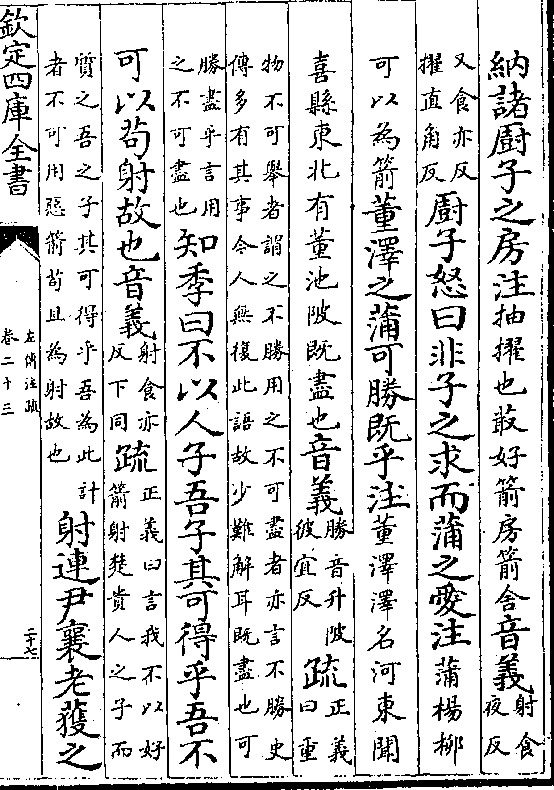 納諸廚子之房注抽擢也菆好箭房箭舍音義射食夜反
又食亦反擢直角反廚子怒曰非子之求而蒲之愛注蒲楊柳
可以為箭董澤之蒲可勝既乎注董澤澤名河東聞
喜縣東北有董池陂既盡也音義勝音升陂彼宜反疏正義曰重
物不可舉者謂之不勝用之不可盡者亦言不勝史傳多有其事今人無復此語故少難解耳既盡也可
勝盡乎言用之不可盡也知季曰不以人子吾子其可得乎吾不
可以苟射故也音義射食亦反下同疏正義曰言我不以好箭射楚貴人之子而
質之吾之子其可得乎吾為此計者不可用惡箭苟且為射故也射連尹襄老獲之
欽定四庫全書
左傳注疏
卷二十三
二十七